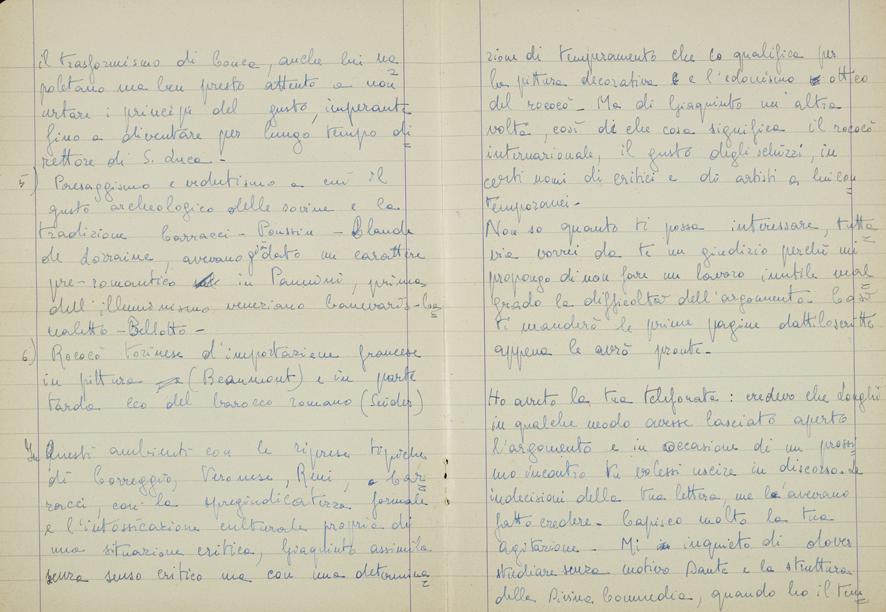 il trasformismo di Conca, anche lui na
poletano ma ben presto attento a non
urtare i principi del gusto imperante
fino a diventare per lungo tempo di
rettore di S. Luca -
5) Paesaggismo e vedutismo a cui il
gusto archeologico delle rovine e la
tradizione Carracci - Poussin - Claude
de Lorraine, avevano già dato un carattere
pre-romantico in Pannini, prima
dell'illuminismo veneziano Canevaris - Ca
naletto - Bellotto -
6) Rococò torinese d'importazione francese
in pittura (Beaumont) e in parte
tarda eco del barocco romano (Seider)
In Questi ambienti con le riprese tipiche
di Correggio, Veronese, Reni, Car
racci, con la spregiudicatezza formale
e l'intossicazione culturale propria di
una situazione critica, Giaquinto assimila
senza senso critico ma con una determina
zione di temperamento che lo qualifica per
la pittura decorativa e l'edonismo ottico
del rococò - Ma di Giaquinto un'altra
volta, così di che cosa significa il rococò
internazionale, il gusto degli schizzi, in
certi nomi di critici e di artisti a lui con
temporanei -
Non so quanto ti possa interessare, tutta
via vorrei da te un giudizio perché mi
propongo di non fare un lavoro inutile mal
grado la difficoltà dell'argomento. Così
ti manderò le prime pagine dattiloscritte
appena le avrò pronte -
Ho avuto la tua telefonata: credevo che Longhi
in qualche modo avesse lasciato aperto
l'argomento e in occasione di un prossi
mo incontro tu volessi uscire in discorso. Le
indecisioni della tua lettera, me l'avevano
fatto credere - Capisco molto la tua
agitazione - Mi inquieto di dover
studiare senza motivo Dante e la struttura
della Divina Commedia, quando ho il tem